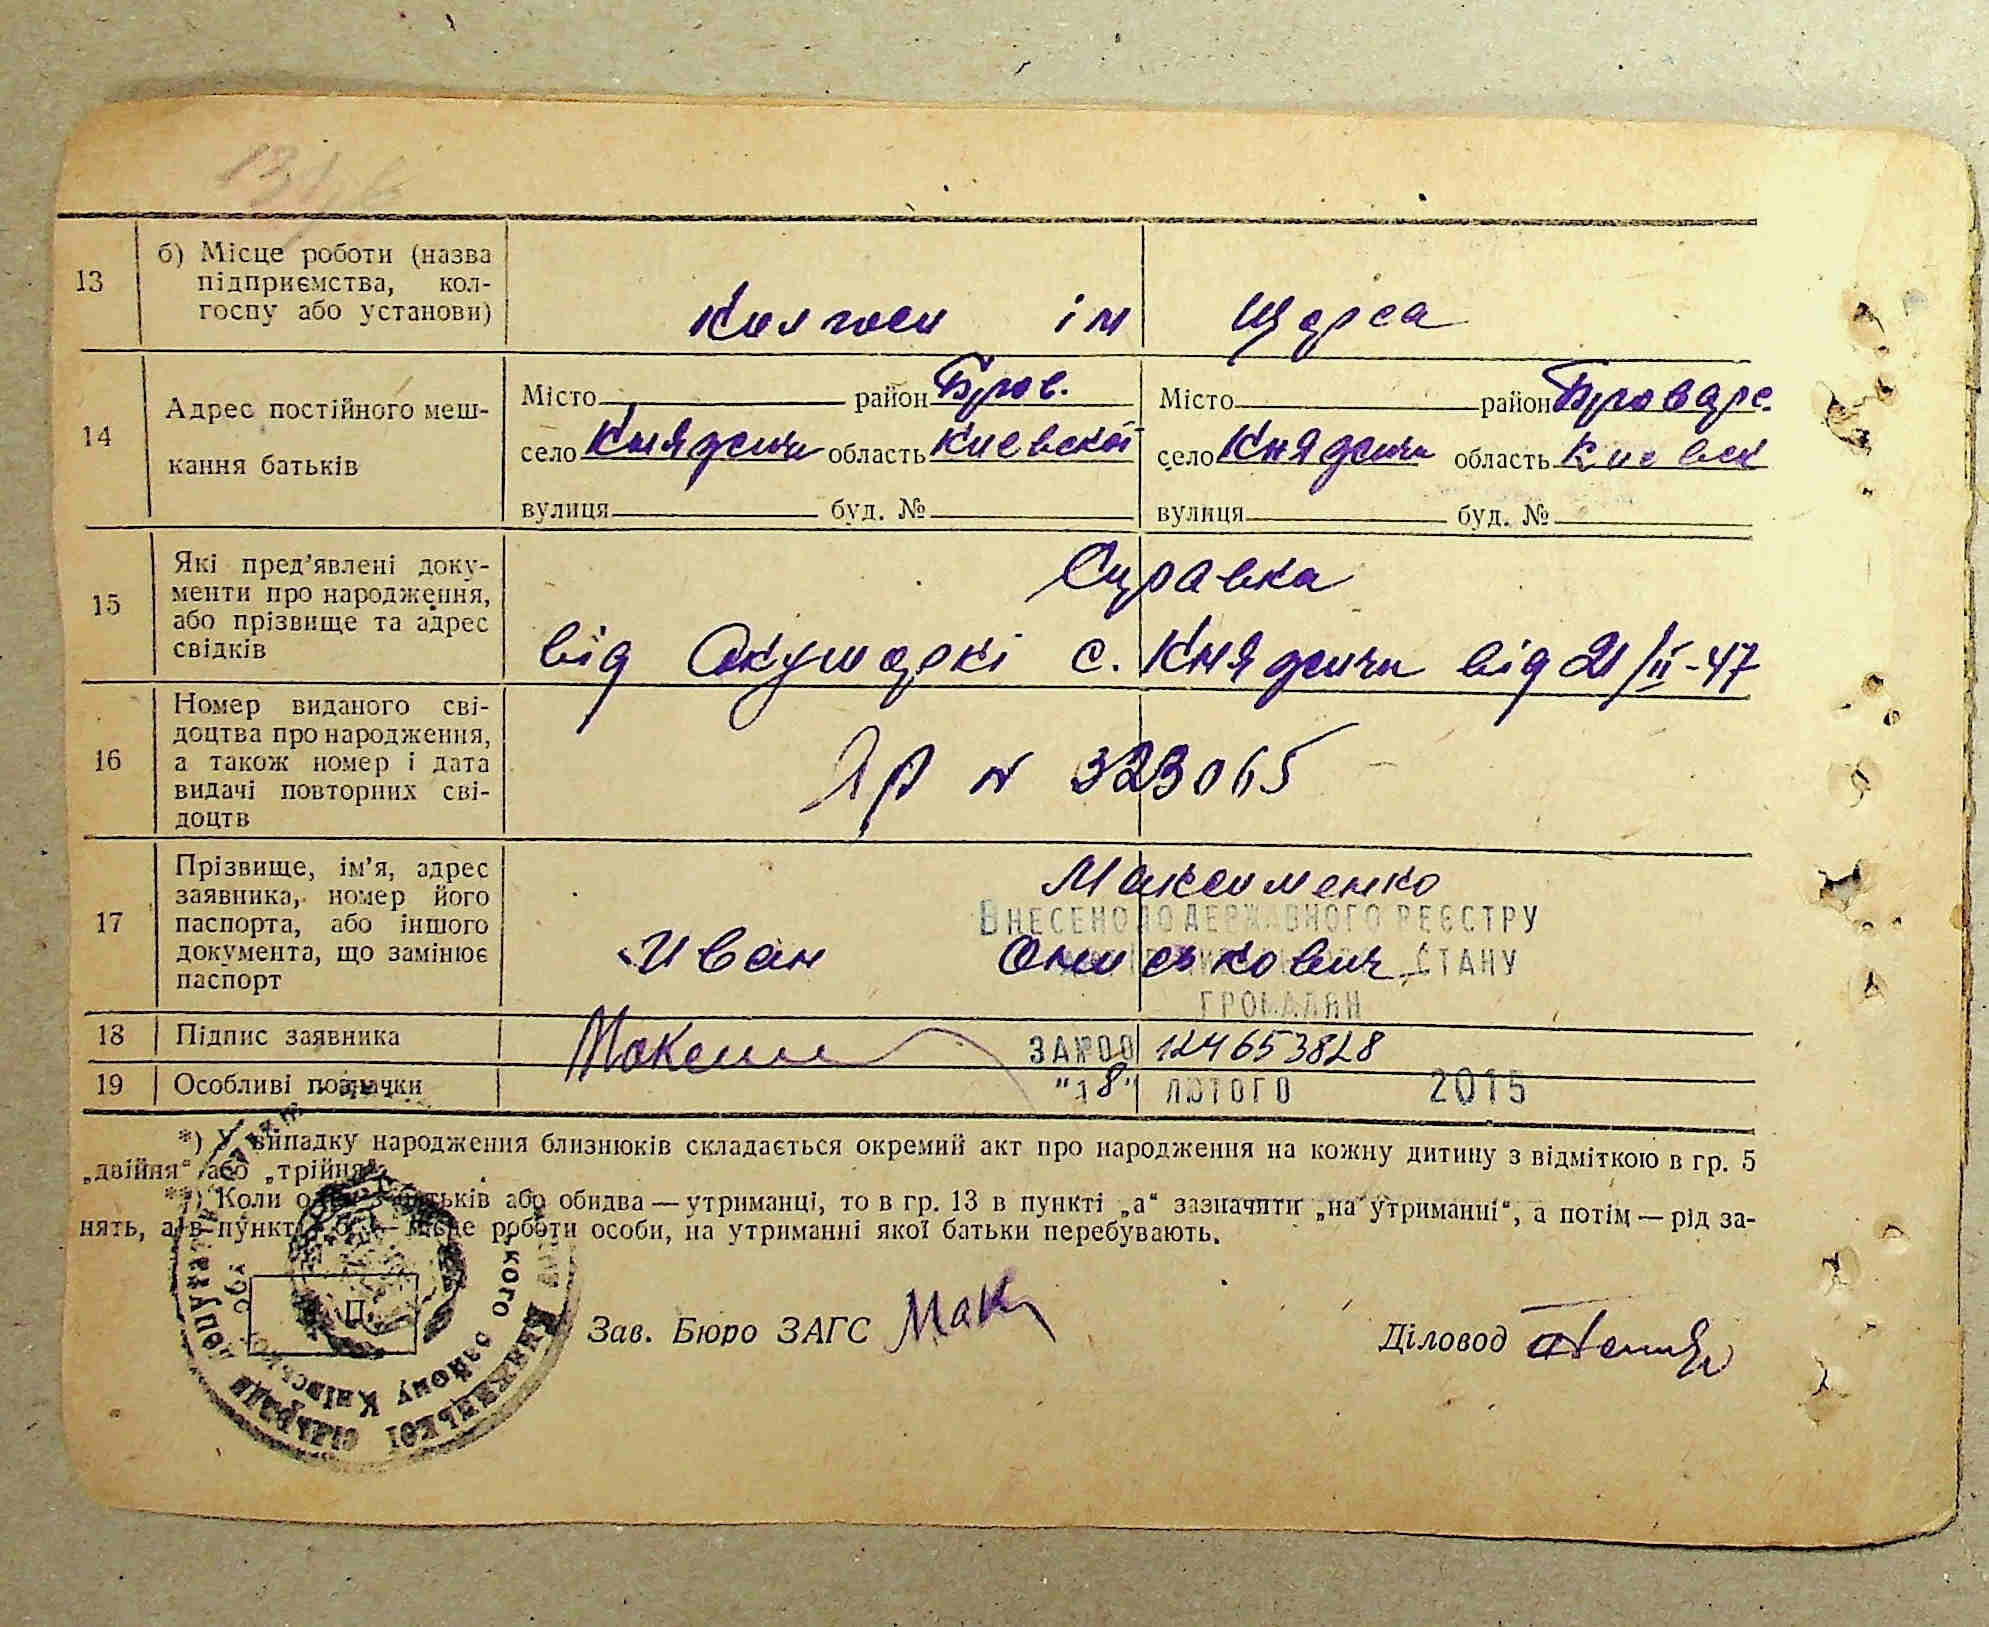 13 б) Місце роботи (назва
підприємства, кол-
госпу або установи)
Колгосп ім Щорса
14 Адрес постійного меш-
кання батьків
Місто район Бров. Місто район Броварс.
село Княжичи область Киевскої село Княжичи область Киевск
вулиця буд. № вулиця буд. №
15 Які пред’явлені доку-
менти про народження,
або прізвище та адрес
свідків
Справка
від Окушеркі с. Княжичи від 21/II-47
16 Номер виданого сві-
доцтва про народження,
а також номер і дата
видачі повторних сві-
доцтв
ЯР N 323065
17 Прізвище, ім’я, адрес
заявника, номер його
паспорта, або іншого
документа, що замінює
паспорт
Максименко
Иван Ониськович
ВНЕСЕНО ДО ДЕРЖАВНОГО РЕЄСТРУ
СТАНУ
ГРОМАДЯН
18 Підпис заявника
ЗА №00 124653828
19 Особливі позначки
"18" ЛЮТОГО 2015
*) У випадку народження близнюків складається окремий акт про народження на кожну дитину з відміткою в гр. 5
„двійня“ або „трійня“.
**) Коли один з батьків або обидва — утриманці, то в гр. 13 в пункті „а“ зазначити „на утриманні“, а потім — рід за-
нять, а в пункті „б“ — місце роботи особи, на утриманні якої батьки перебувають.
П.
Княжицької сільради депутатів
кого району Київської
Зав. Бюро ЗАГС Мак
Діловод